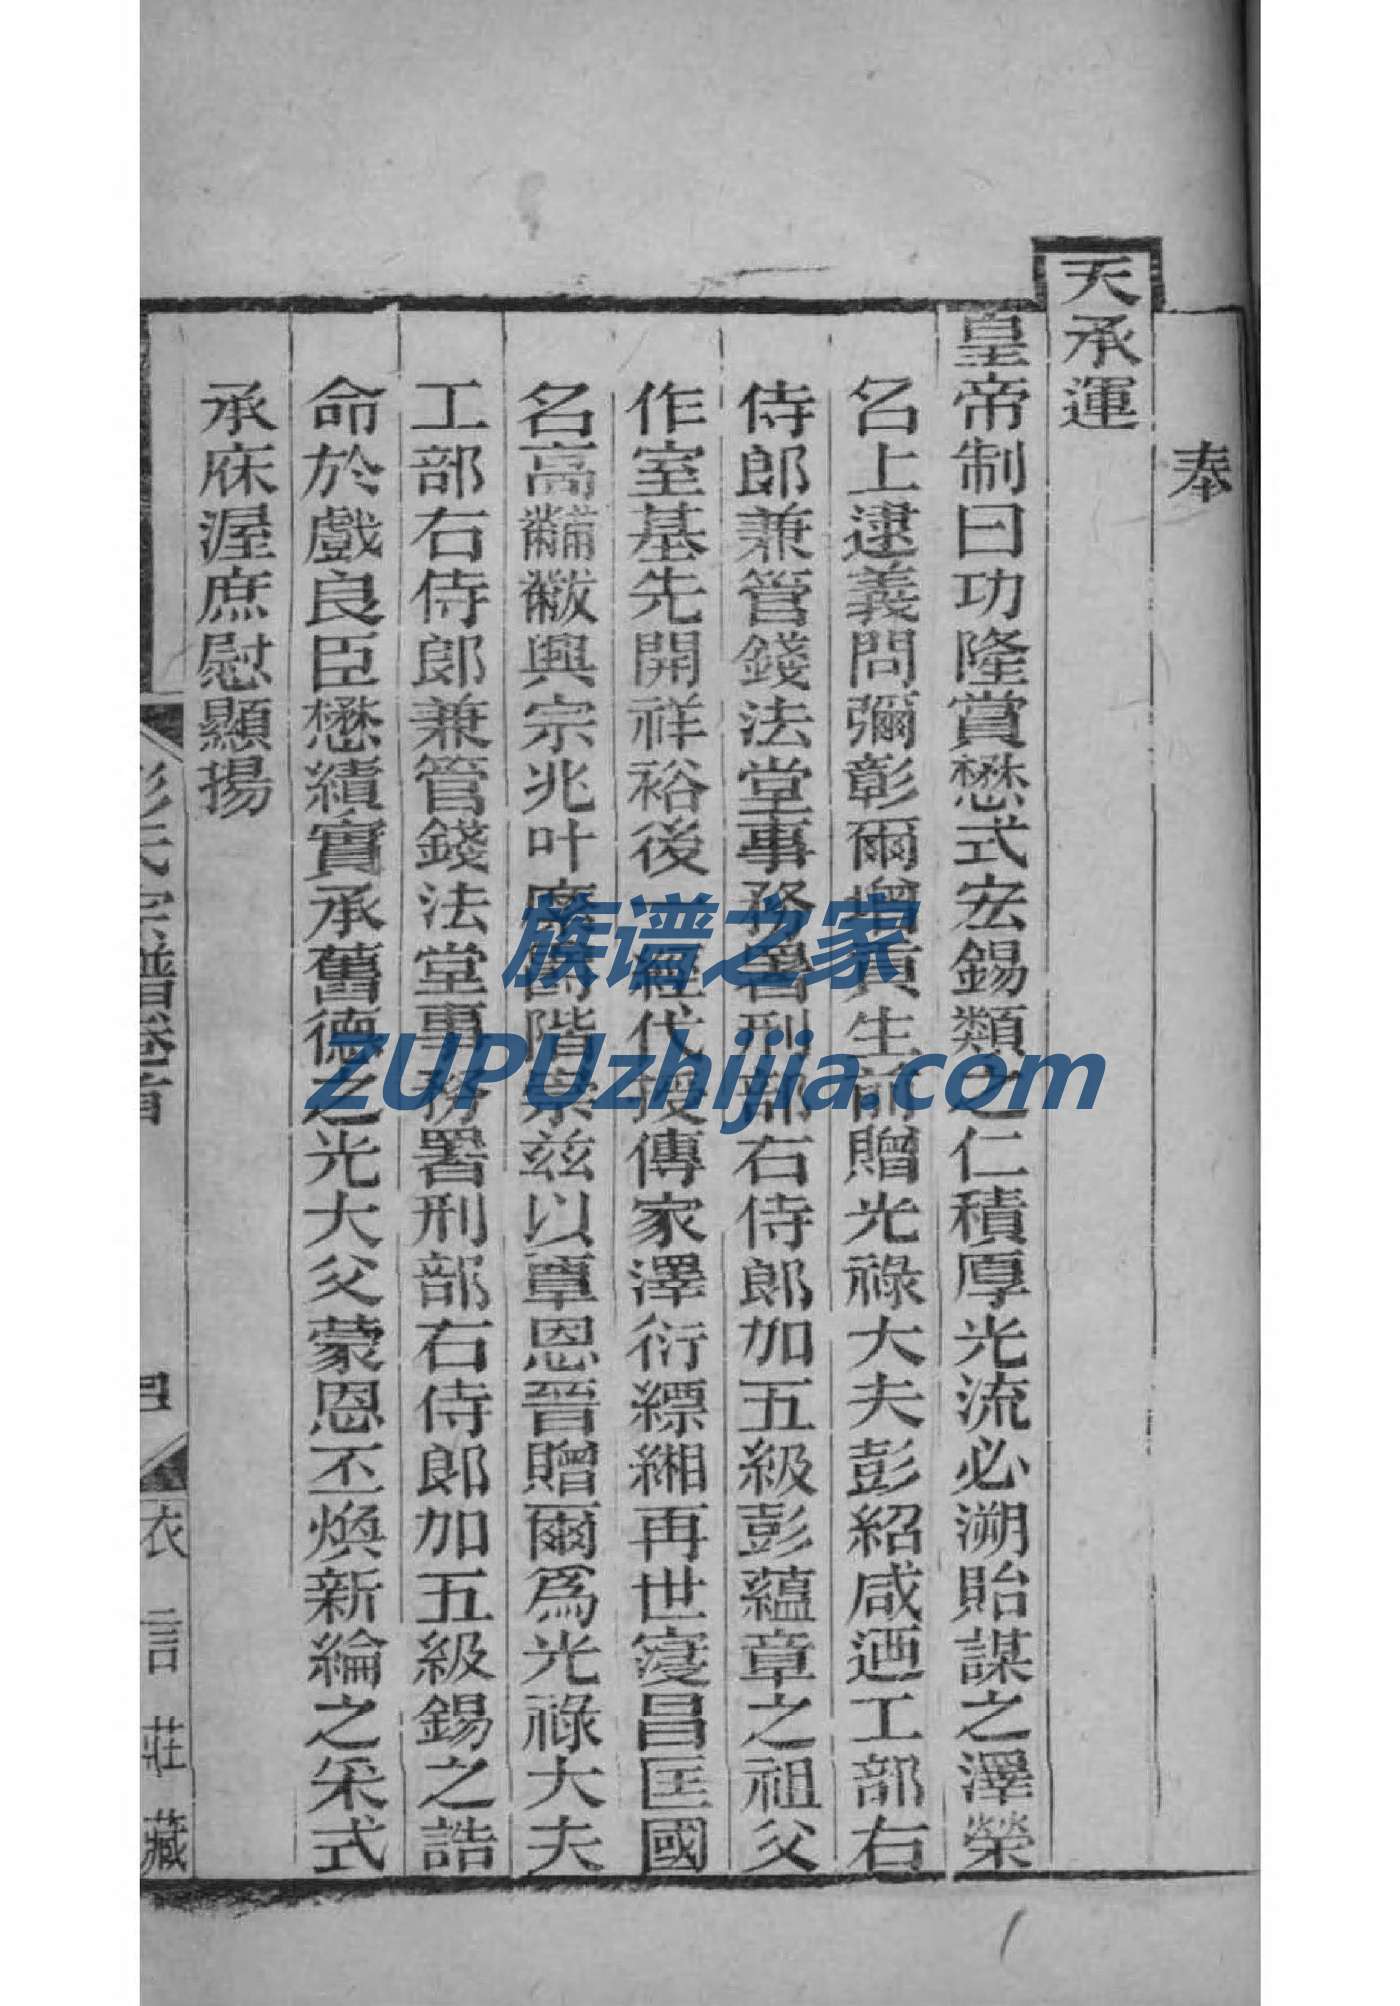 奉
天承運
皇帝制曰功隆賞懋式宏錫類之仁積厚光流必溯貽謀之澤榮
名上逮義問彌彰爾增貢生前贈光祿大夫彭紹咸迺工部右
侍郎兼管錢法堂事務署刑部右侍郎加五級彭蘊章之祖父
作室基先開祥裕後一經代授傳家澤衍縹緗再世寖昌匡國
名高黼黻興宗兆叶階茲以覃恩晉贈爾爲光祿大夫
工部右侍郎兼管錢法堂事務署刑部右侍郎加五級錫之誥
命於戲良臣懋績實承舊德之光大父蒙恩丕煥新綸之采式
承庥渥庶慰顯揚
彭氏宗譜卷首
四
衣言莊藏
族谱之家
ZUPUzhijia.com